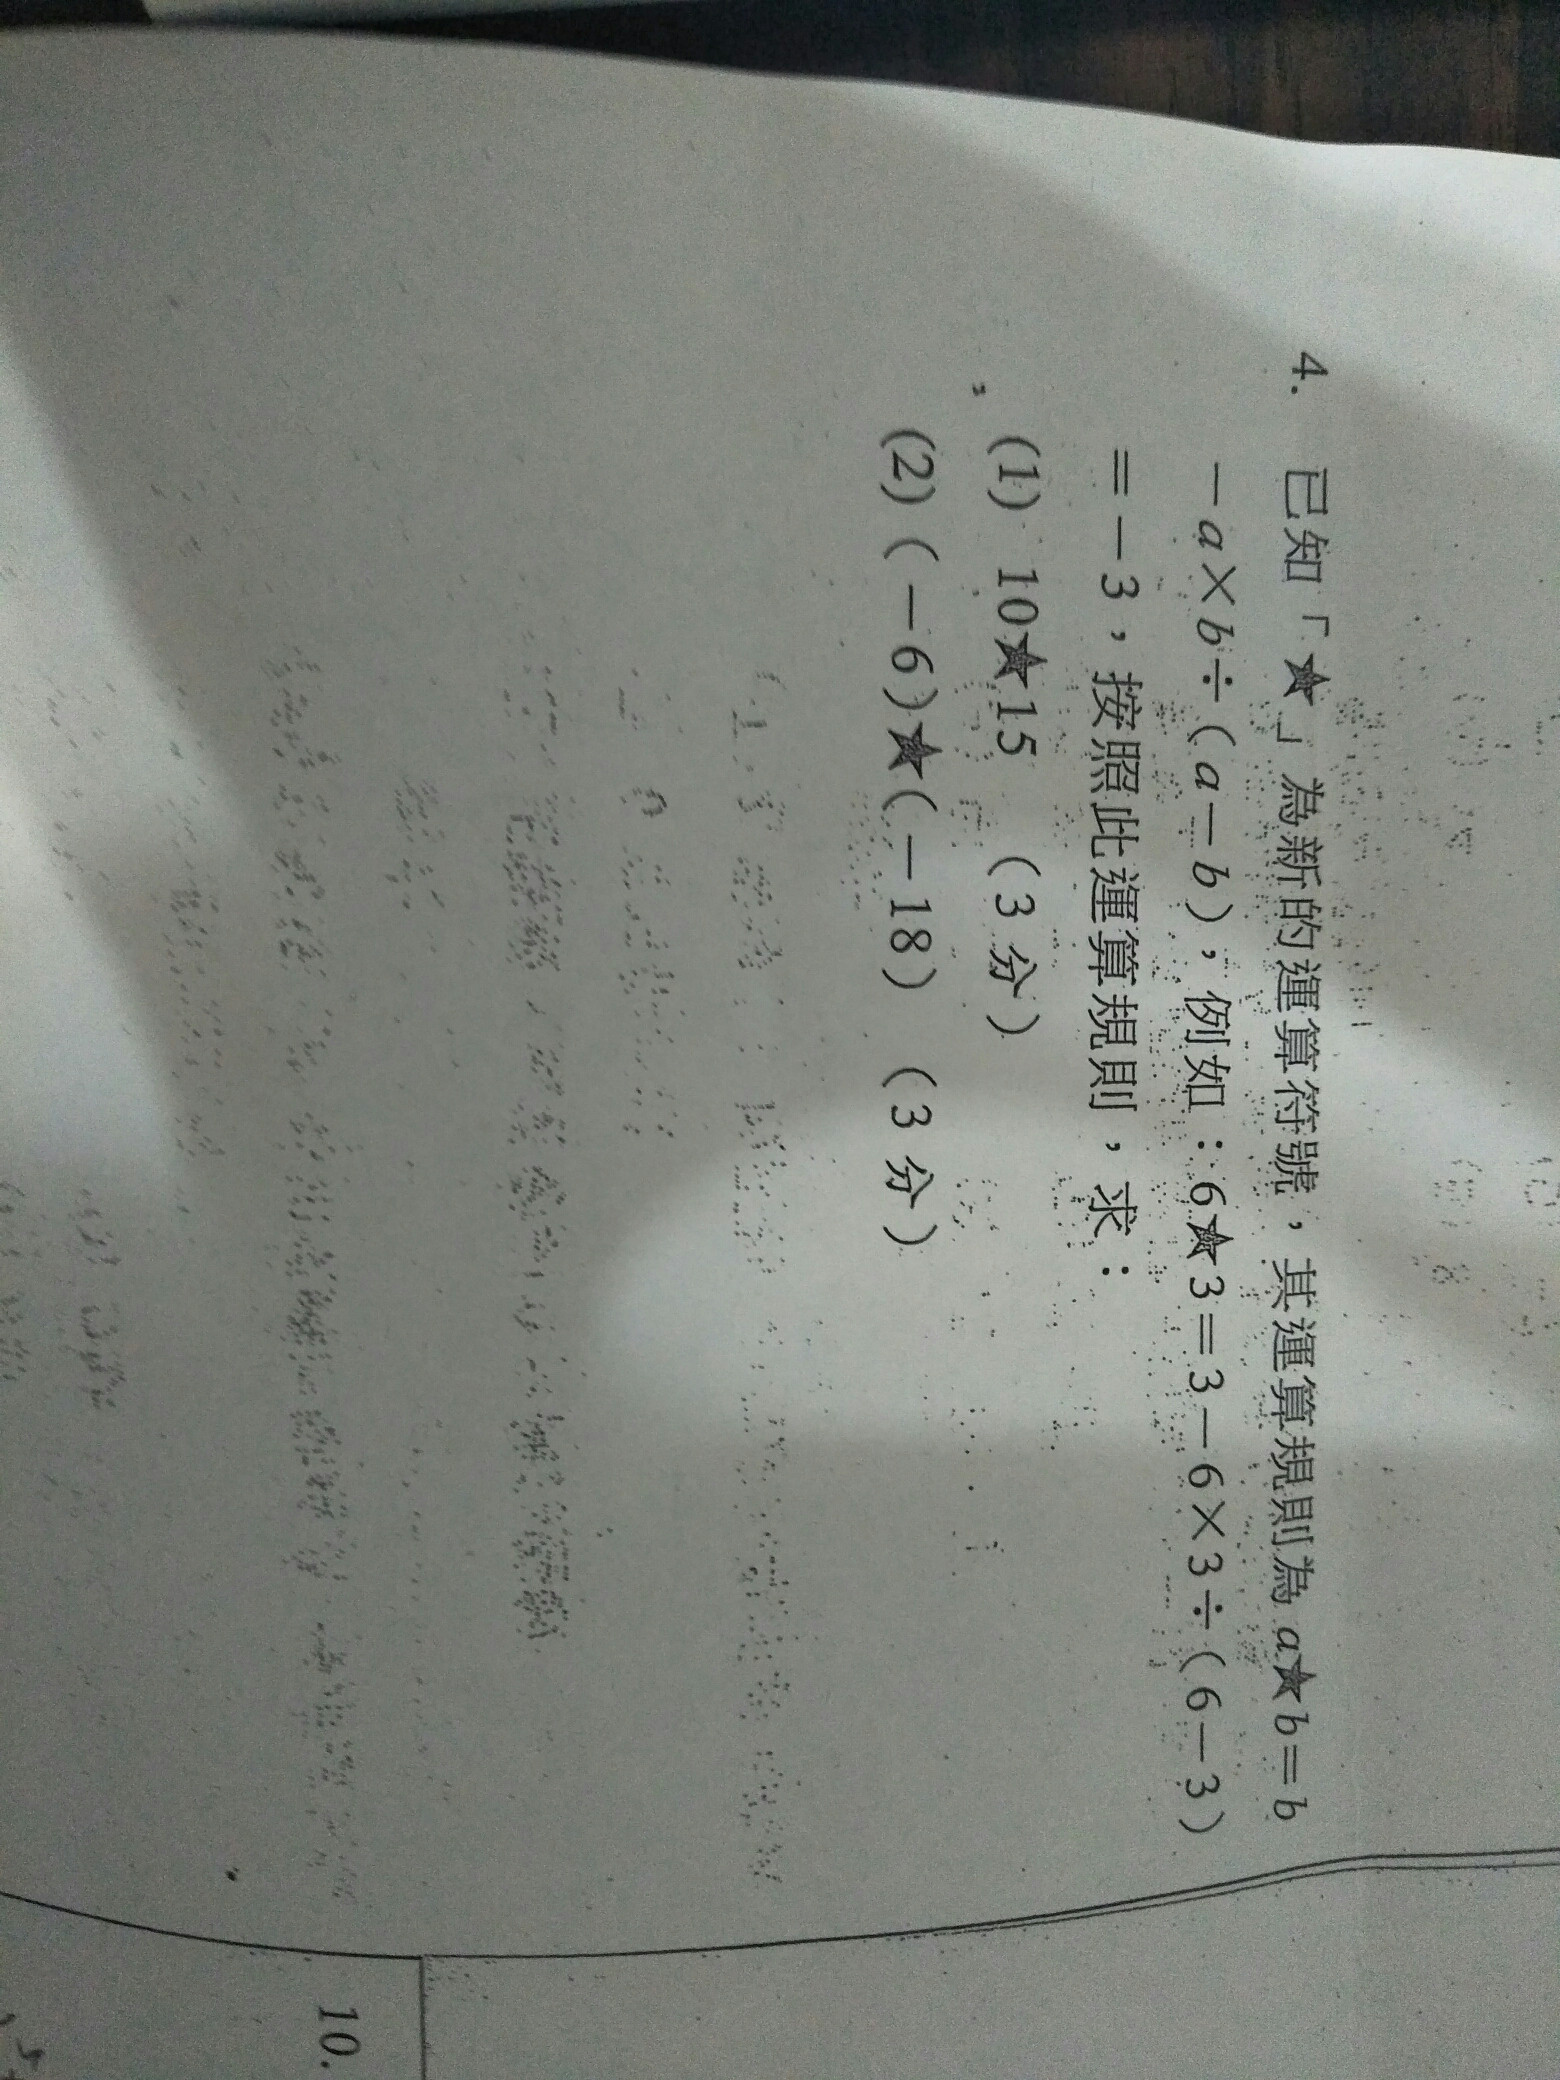 4. 已知「★」為新的運算符號，其運算規則為 a★b=b
－a×b÷(a－b)，例如：6★3=3－6×3÷(6－3)
=－3，按照此運算規則，求：
(1) 10★15 (3分)
(2) (－6)★(－18) (3分)
10.